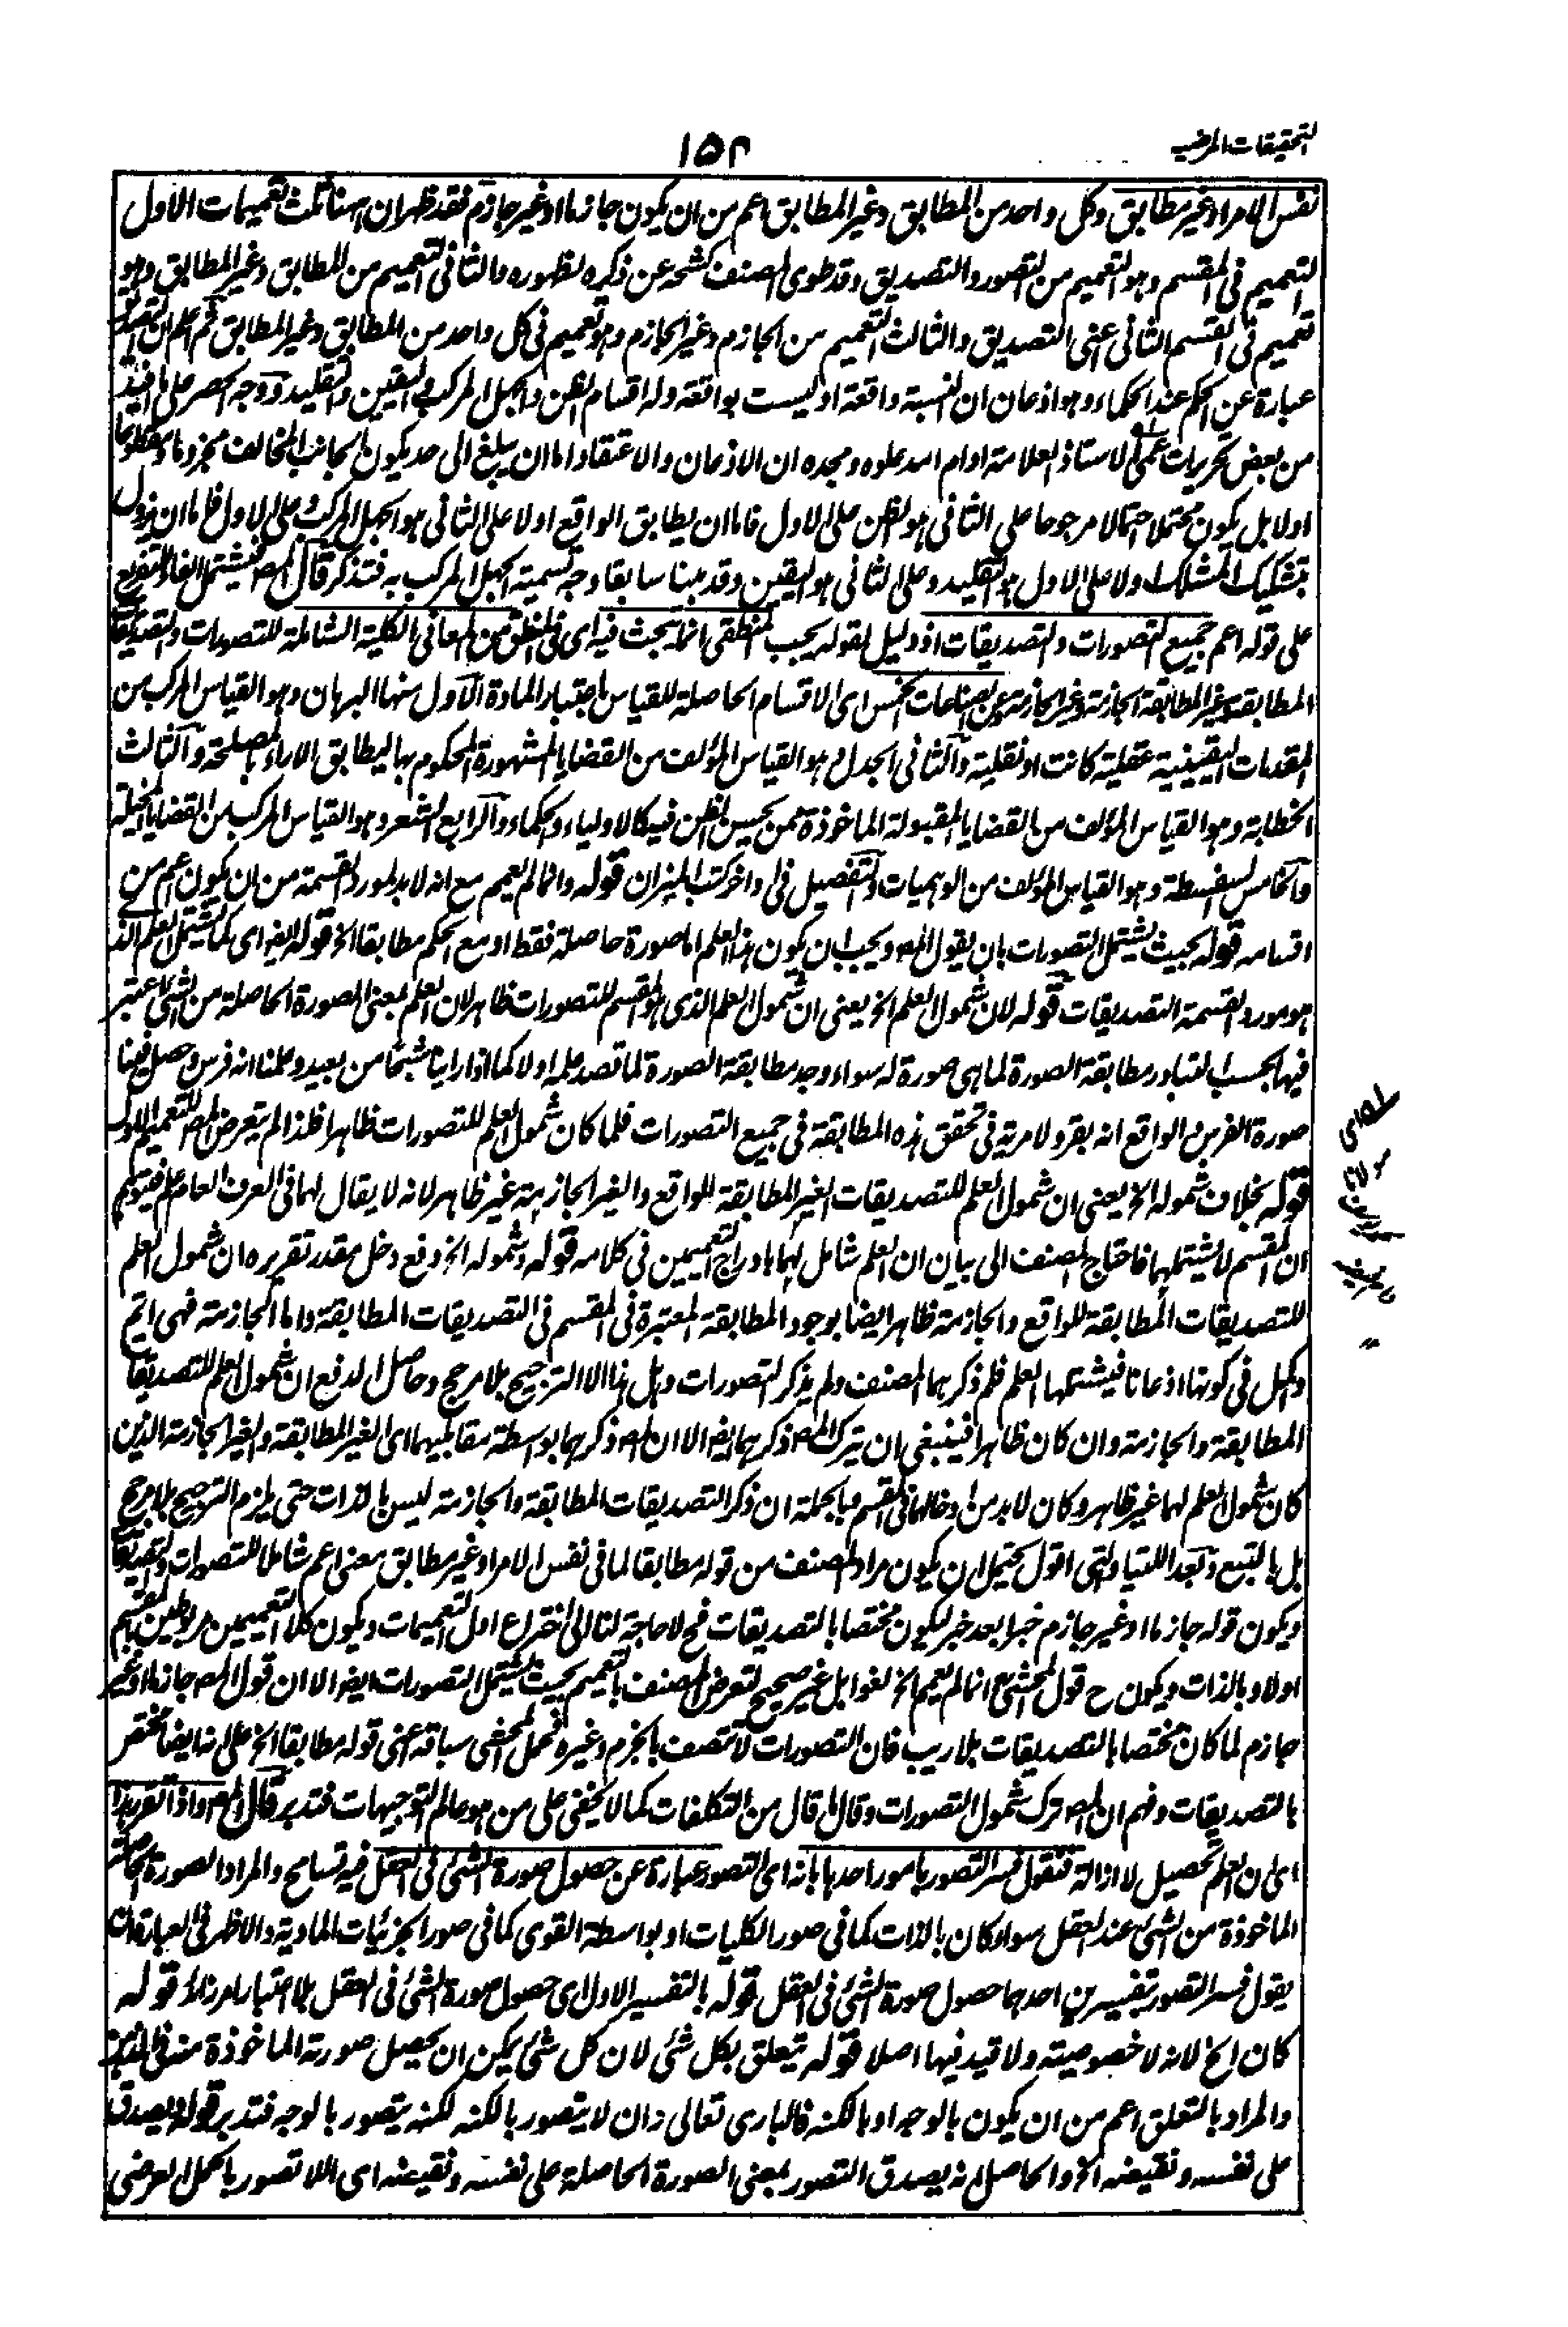 التحقيقات المرضيه
١٥٢
نفس الامر او غير مطابق وكل واحد من المطابق وغير المطابق اعم من ان يكون جازما او غير جازم فقد ظهر ان ههنا ثلث تعميمات الاول
التعميم فى المقسم وهو التعميم من التصور والتصديق وقد طوى المصنف كشحه عن ذكره لظهوره والثانى التعميم من المطابق وغير المطابق وهو
تعميم فى القسم الثانى اعنى التصديق والثالث التعميم من الجازم وغير الجازم وهو تعميم فى كل واحد من المطابق وغير المطابق ثم اعلم ان التصديق
عبارة عن الحكم عند الحكماء وهو اذعان ان النسبة واقعة او ليست بواقعة وله اقسام الظن والجهل المركب واليقين والتقليد ووجه الحصر على ما افيد
من بعض تحريرات عمى الاستاذ العلامة ادام الله علوه ومجده ان الاذعان والاعتقاد اما ان يبلغ الى حد يكون الجانب المخالف مجزوما
اولا بل يكون محتملا احتمالا مرجوحا على الثانى هو الظن على الاول فاما ان يطابق الواقع اولا على الثانى هو الجهل المركب وعلى الاول فاما ان يزول
بتشكيك المشكك اولا على الاول هو التقليد وعلى الثانى هو اليقين وقد بينا سابقا وجه تسمية الجهل المركب به فتذكر قال المص ليشتمل الفاء للتفريع
على قوله اعم جميع التصورات والتصديقات اذ دليل لقوله يجب المنطقى انما يبحث فيه اى فى المنطق من المعانى الكلية الشاملة للتصورات والتصديقات
المطابقة وغير المطابقة الجازمة وغير الجازمة وعن الصناعات الخمس اى الاقسام الحاصلة للقياس باعتبار المادة الاول منها البرهان وهو القياس المركب من
المقدمات اليقينية عقلية كانت او نقلية والثانى الجدل وهو القياس المؤلف من القضايا المشهورة المحكوم بها ليطابق الاراء بالمصلحة والثالث
الخطابة وهو القياس المؤلف من القضايا المقبولة الماخوذة ممن يحسن الظن فيه كالاولياء والحكماء والرابع الشعر وهو القياس المركب من القضايا المخيلة
والخامس السفسطة وهو القياس المؤلف من الوهميات والتفصيل فى اواخر كتب الميزان قوله وانما لم يعمم مع انه لا بد لمورد القسمة من ان يكون اعم من
اقسامه قوله بحيث يشتمل التصورات بان يقول المص ويجب ان يكون هذا العلم اما صورة حاصلة فقط او مع الحكم مطابقا الخ قوله ايض اى كما يشتمل العلم الذى
هو مورد القسمة التصديقات قوله لان شمول العلم الخ يعنى ان شمول العلم الذى هو المقسم للتصورات ظاهر لان العلم بمعنى الصورة الحاصلة من الشئ المعتبر
فيها بحسب المتبادر مطابقة الصورة لما هى صورة له سواء وجد مطابقة الصورة لما قصد علمه اولا كما اذا راينا شبحا من بعيد وعلمنا انه فرس وحصل فينا
صورة الفرس والواقع انه بقر ولا مرية فى تحقق هذه المطابقة فى جميع التصورات فلما كان شمول العلم للتصورات ظاهرا فلذا لم يتعرض المص للتعميم الاول
قوله بخلاف شموله الخ يعنى ان شمول العلم للتصديقات الغير المطابقة للواقع والغير الجازمة غير ظاهر لانه لا يقال لهما فى العرف العام علم فيتوهم
ان المقسم لا يشتملهما فاحتاج المصنف الى بيان ان العلم شامل لهما بادراج التعميمين فى كلامه قوله وشموله الخ دفع دخل مقدر تقريره ان شمول العلم
للتصديقات المطابقة للواقع والجازمة ظاهر ايضا بوجود المطابقة المعتبرة فى المقسم فى التصديقات المطابقة واما الجازمة فهى اتم
واكمل فى كونها اذعانا فيشتملها العلم فلم ذكرهما المصنف ولم يذكر التصورات وهل هذا الا الترجيح بلا مرجح وحاصل الدفع ان شمول العلم للتصديقات
المطابقة والجازمة وان كان ظاهرا فينبغى ان يترك المص ذكرهما ايض الا ان المص ذكرهما بواسطة مقابليهما اى الغير المطابقة والغير الجازمة الذين
كان شمول العلم لهما غير ظاهر وكان لا بد من ادخالهما فى المقسم وبالجملة ان ذكر التصديقات المطابقة والجازمة ليس بالذات حتى يلزم الترجيح بلا مرجح
بل بالتبع وبعد اللتيا والتى اقول يحتمل ان يكون مراد المصنف من قوله مطابقا لما فى نفس الامر او غير مطابق معنى اعم شاملا للتصورات والتصديقات
ويكون قوله جازما او غير جازم خبرا بعد خبر ليكون مختصا بالتصديقات فح لا حاجة لنا الى اختراع اول التعميمات ويكون كلا التعميمين مربوطين بالمقسم
اولا وبالذات ويكون ح قول المحشى انما لم يعمم الخ لغوا بل غير صحيح لتعرض المصنف بالتعميم بحيث يشتمل التصورات ايض الا ان قول المص جازما او غير
جازم لما كان مختصا بالتصديقات بلا ريب فان التصورات لا تتصف بالجزم وغيره فحمل المحشى سباقه اعنى قوله مطابقا الخ على انه ايضا مختص
بالتصديقات وفهم ان المص ترك شمول التصورات وقال ما قال من التكلفات كما لا يخفى على من هو عالم التوجيهات فتدبر قال المص واذا تقرر هذا
اى ان العلم تحصيل لا ازالة فنقول فسر التصور بامور احدها بانه اى التصور عبارة عن حصول صورة الشئ فى العقل فيه تسامح والمراد الصورة الحاصلة
الماخوذة من الشئ عند العقل سواء كان بالذات كما فى صور الكليات او بواسطة القوى كما فى صور الجزئيات المادية والاظهر فى العبارة ان
يقول فسر التصور بتفسيرين احدهما حصول صورة الشئ فى العقل قوله بالتفسير الاول اى حصول صورة الشئ فى العقل بلا اعتبار امر زائد قوله
كان الخ لانه لا خصوصية ولا قيد فيها اصلا قوله يتعلق بكل شئ لان كل شئ يمكن ان يحصل صورته الماخوذة منه فى الذهن
والمراد بالتعلق اعم من ان يكون بالوجه او بالكنه فالبارى تعالى وان لا يتصور بالكنه لكنه يتصور بالوجه فتدبر قوله ويصدق
على نفسه ونقيضه الخ والحاصل انه يصدق التصور بمعنى الصورة الحاصلة على نفسه ونقيضه اى اللاتصور بالحمل العرضى